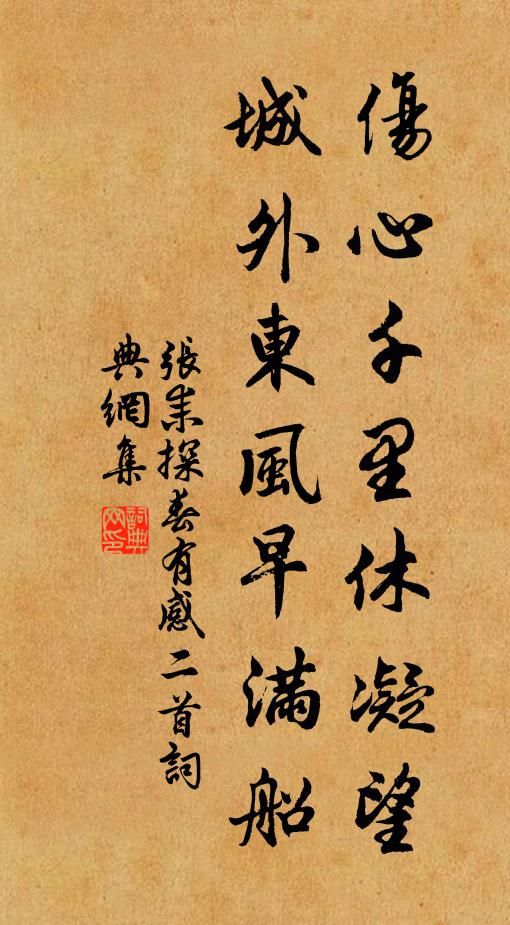 傷心千里休凝望
城外東風早滿船
張耒探春有感二首詞
典網集